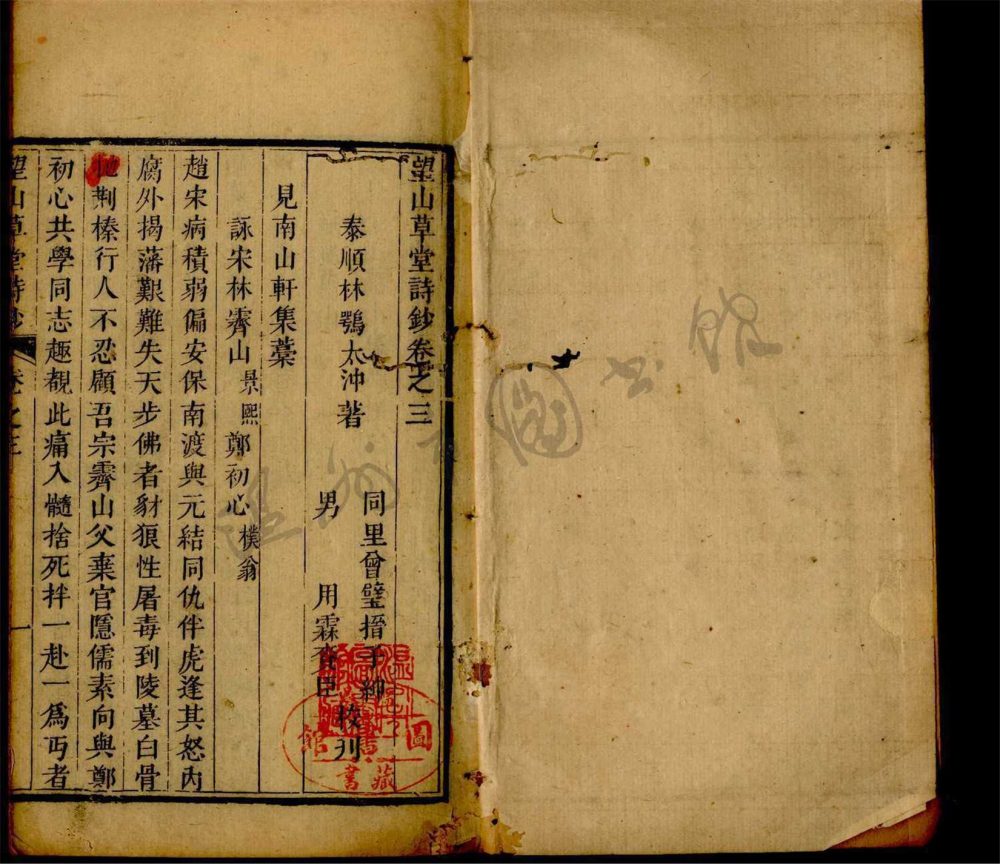 望山草堂詩鈔卷之三
泰順林鶚太沖著
同里曾璧搢子紳
男 用霖
校刊
見南山軒集藁
詠宋林霽山景熙鄭初心樸翁
趙宋病積弱偏安保南渡與元結同仇伴虎逢其怒內
腐外揭藩艱難失天步佛者豺狼性屠毒到陵墓白骨
荆榛行人不忍顧吾宗霽山父棄官隱儒素向與鄭
初心共學同志趣覩此痛入髓捨死拌一赴一爲丐者
望山草堂詩鈔 卷之三 一
圖
館
藏
書
溫州市圖書館